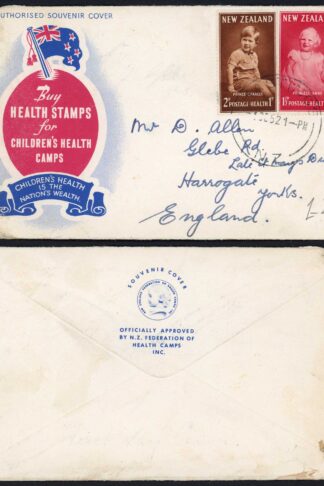 AUTHORISED SOUVENIR COVER
Buy
HEALTH STAMPS
for
CHILDREN'S HEALTH
CAMPS
CHILDREN'S HEALTH
IS THE
NATION'S WEALTH
NEW ZEALAND
PRINCE CHARLES
2D POSTAGE HEALTH 1D
NEW ZEALAND
PRINCESS ANNE
52 1 - PM
Mr D. Allen
Glebe Rd.
Harrogate
Yorks.
England.
SOUVENIR COVER
OFFICIALLY APPROVED
BY N.Z. FEDERATION OF
HEALTH CAMPS
INC.